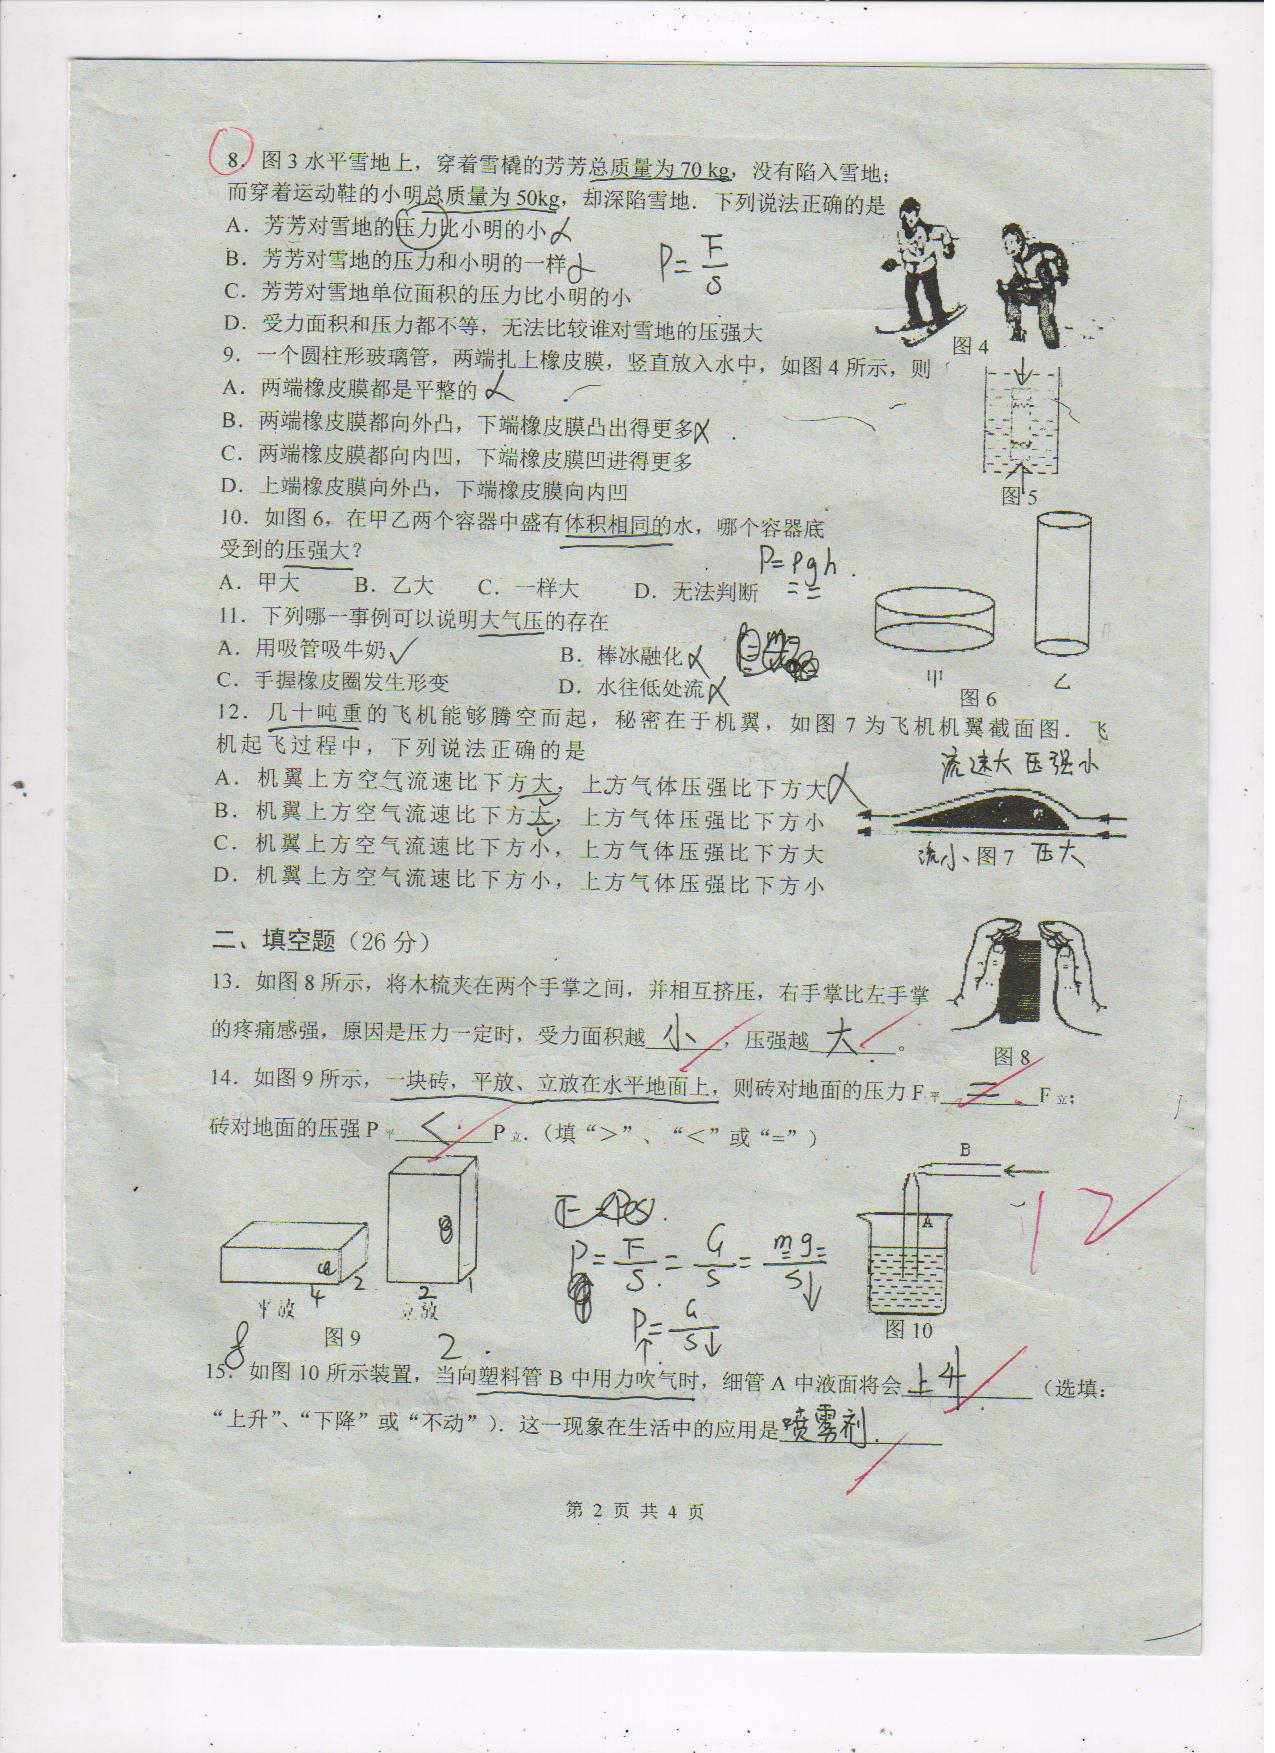 8．图 3 水平雪地上，穿着雪橇的芳芳总质量为 70 kg，没有陷入雪地；
而穿着运动鞋的小明总质量为 50kg，却深陷雪地．下列说法正确的是
A．芳芳对雪地的压力比小明的小
B．芳芳对雪地的压力和小明的一样
P= F/S
C．芳芳对雪地单位面积的压力比小明的小
D．受力面积和压力都不等，无法比较谁对雪地的压强大
图 4
9．一个圆柱形玻璃管，两端扎上橡皮膜，竖直放入水中，如图 4 所示，则
A．两端橡皮膜都是平整的
B．两端橡皮膜都向外凸，下端橡皮膜凸出得更多
C．两端橡皮膜都向内凹，下端橡皮膜凹进得更多
D．上端橡皮膜向外凸，下端橡皮膜向内凹
图 5
10．如图 6，在甲乙两个容器中盛有体积相同的水，哪个容器底
受到的压强大？
P=ρgh
A．甲大 B．乙大 C．一样大 D．无法判断
11．下列哪一事例可以说明大气压的存在
A．用吸管吸牛奶✓ B．棒冰融化
C．手握橡皮圈发生形变 D．水往低处流
甲 乙
图 6
12．几十吨重的飞机能够腾空而起，秘密在于机翼，如图 7 为飞机机翼截面图．飞
机起飞过程中，下列说法正确的是
流速大 压强小
A．机翼上方空气流速比下方大，上方气体压强比下方大
B．机翼上方空气流速比下方大，上方气体压强比下方小
C．机翼上方空气流速比下方小，上方气体压强比下方大
流小、图 7 压大
D．机翼上方空气流速比下方小，上方气体压强比下方小
二、填空题（26 分）
13．如图 8 所示，将木梳夹在两个手掌之间，并相互挤压，右手掌比左手掌
的疼痛感强，原因是压力一定时，受力面积越 小 ，压强越 大 。
图 8
14．如图 9 所示，一块砖，平放、立放在水平地面上，则砖对地面的压力 F平 = F立；
砖对地面的压强 P平 < P立．（填“＞”、“＜”或“=”）
B
A
12
P= F/S = G/S = mg/S↓
P↑= G/S↓
4 2 2 1
平放 立放
图 9
图 10
8 2
15．如图 10 所示装置，当向塑料管 B 中用力吹气时，细管 A 中液面将会 上升 （选填：
“上升”、“下降”或“不动”）．这一现象在生活中的应用是 喷雾剂.
第 2 页 共 4 页